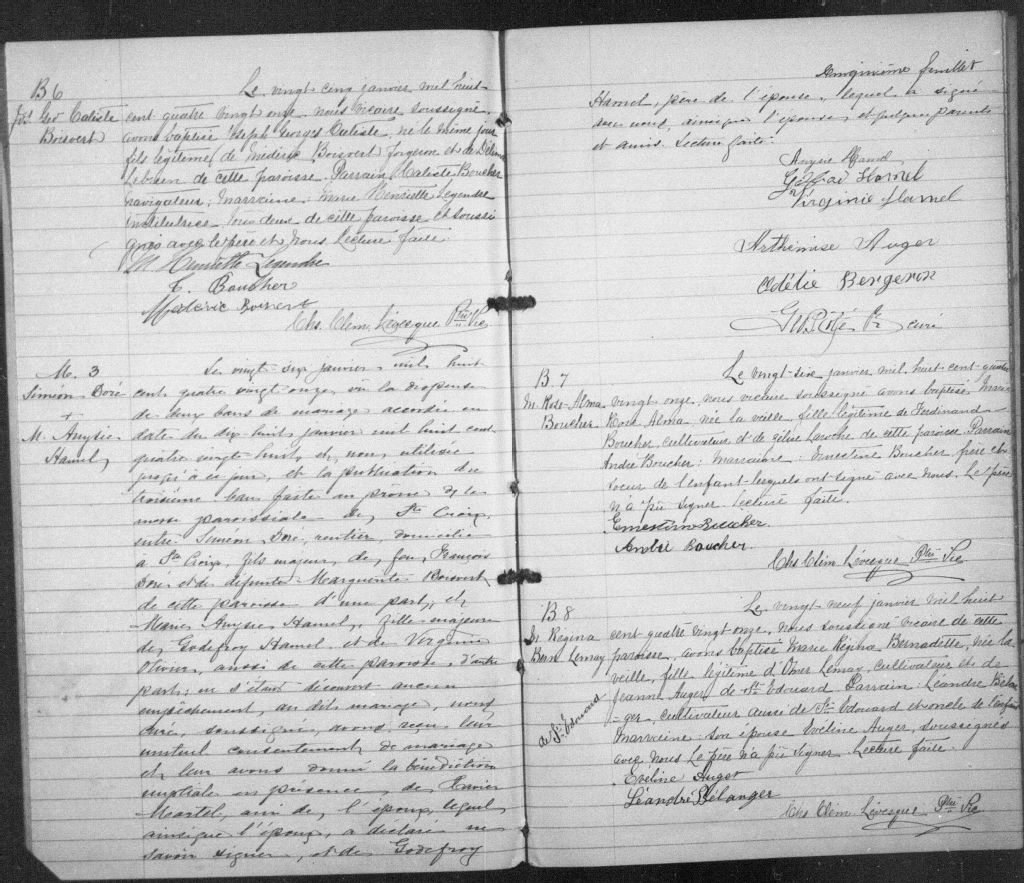 B 6
Jos. Geo Caliste
Boisvert
Le vingt cinq janvier mil huit
cent quatre vingt onze, nous vicaire soussigné,
avons baptisé Joseph Georges Caliste, né le même jour
fils légitime de Médéric Boisvert forgeron et de Délima
de cette paroisse. Parrain, Caliste Boucher
navigateur; Marraine: Marie Henriette Legendre
institutrice, tous deux de cette paroisse et soussi
gnés avec le père et Nous. Lecture faite.
M. Henriette Legendre
C. Boucher
Médéric Boisvert
Chs. Clém. Lévesque Ptre Vic
M. 3
Siméon Doré
+
M. Anysie
Hamel
Le vingt six janvier mil huit
cent quatre vingt onze, vu la dispense
de deux bans de mariage accordée en
date du dix-huit janvier mil huit cent
quatre vingt huit, et non utilisée
jusqu'à ce jour, et la publication du
troisième ban faite au prône de la
messe paroissiale de Ste Croix,
entre Siméon Doré, rentier, domicilié
à Ste Croix, fils majeur de feu François
Doré et de défunte Marguerite Boisvert,
de cette paroisse d'une part; et
Marie Anysie Hamel, fille majeure
de Godefroy Hamel et de Virginie
Olivier, aussi de cette paroisse, d'autre
part; ne s'étant découvert aucun
empêchement, au dit mariage, nous
curé, soussigné, avons reçu leur
mutuel consentement de mariage
et leur avons donné la bénédiction
nuptiale en présence de Xavier
Martel, ami de l'époux, lequel
ainsi que l'époux, a déclaré ne
savoir signer, et de Godefroy
Cinquième feuillet
Hamel, père de l'épouse, lequel a signé
avec nous, ainsi que l'épouse, et quelques parents
et amis. Lecture faite.
Anysie Hamel
Hamel
Virginie Hamel
Arthémise Auger
Odélie Bergeron
Ptre curé
B 7
M. Rose-Alma
Boucher
Le vingt-six janvier mil huit-cent-quatre
vingt onze, nous vicaire soussigné avons baptisé Marie
Rose Alma née la veille, fille légitime de Ferdinand
Boucher, cultivateur et de Célina Laroche de cette paroisse. Parrain
André Boucher; Marraine: Ernestine Boucher, frère et
soeur de l'enfant lesquels ont signé avec nous. Le père
n'a pu signer. Lecture faite.
Ernestine Boucher
André Boucher
Chs Clém Lévesque Ptre Vic
B 8
M. Régina
Bern. Lemay
de St. Edouard
Le vingt neuf janvier mil huit
cent quatre vingt onze, nous soussigné vicaire de cette
paroisse, avons baptisé Marie Régina Bernadette, née la
veille, fille légitime d'Omer Lemay, cultivateur et de
Jeanne Auger de St. Edouard. Parrain: Léandre Bélan
ger, cultivateur aussi de St. Edouard et oncle de l'enfant
Marraine: son épouse Evéline Auger, soussignés
avec nous. Le père n'a pu signer. Lecture faite.
Evéline Auger
Léandre Bélanger
Chs Clém Lévesque Ptre Vic